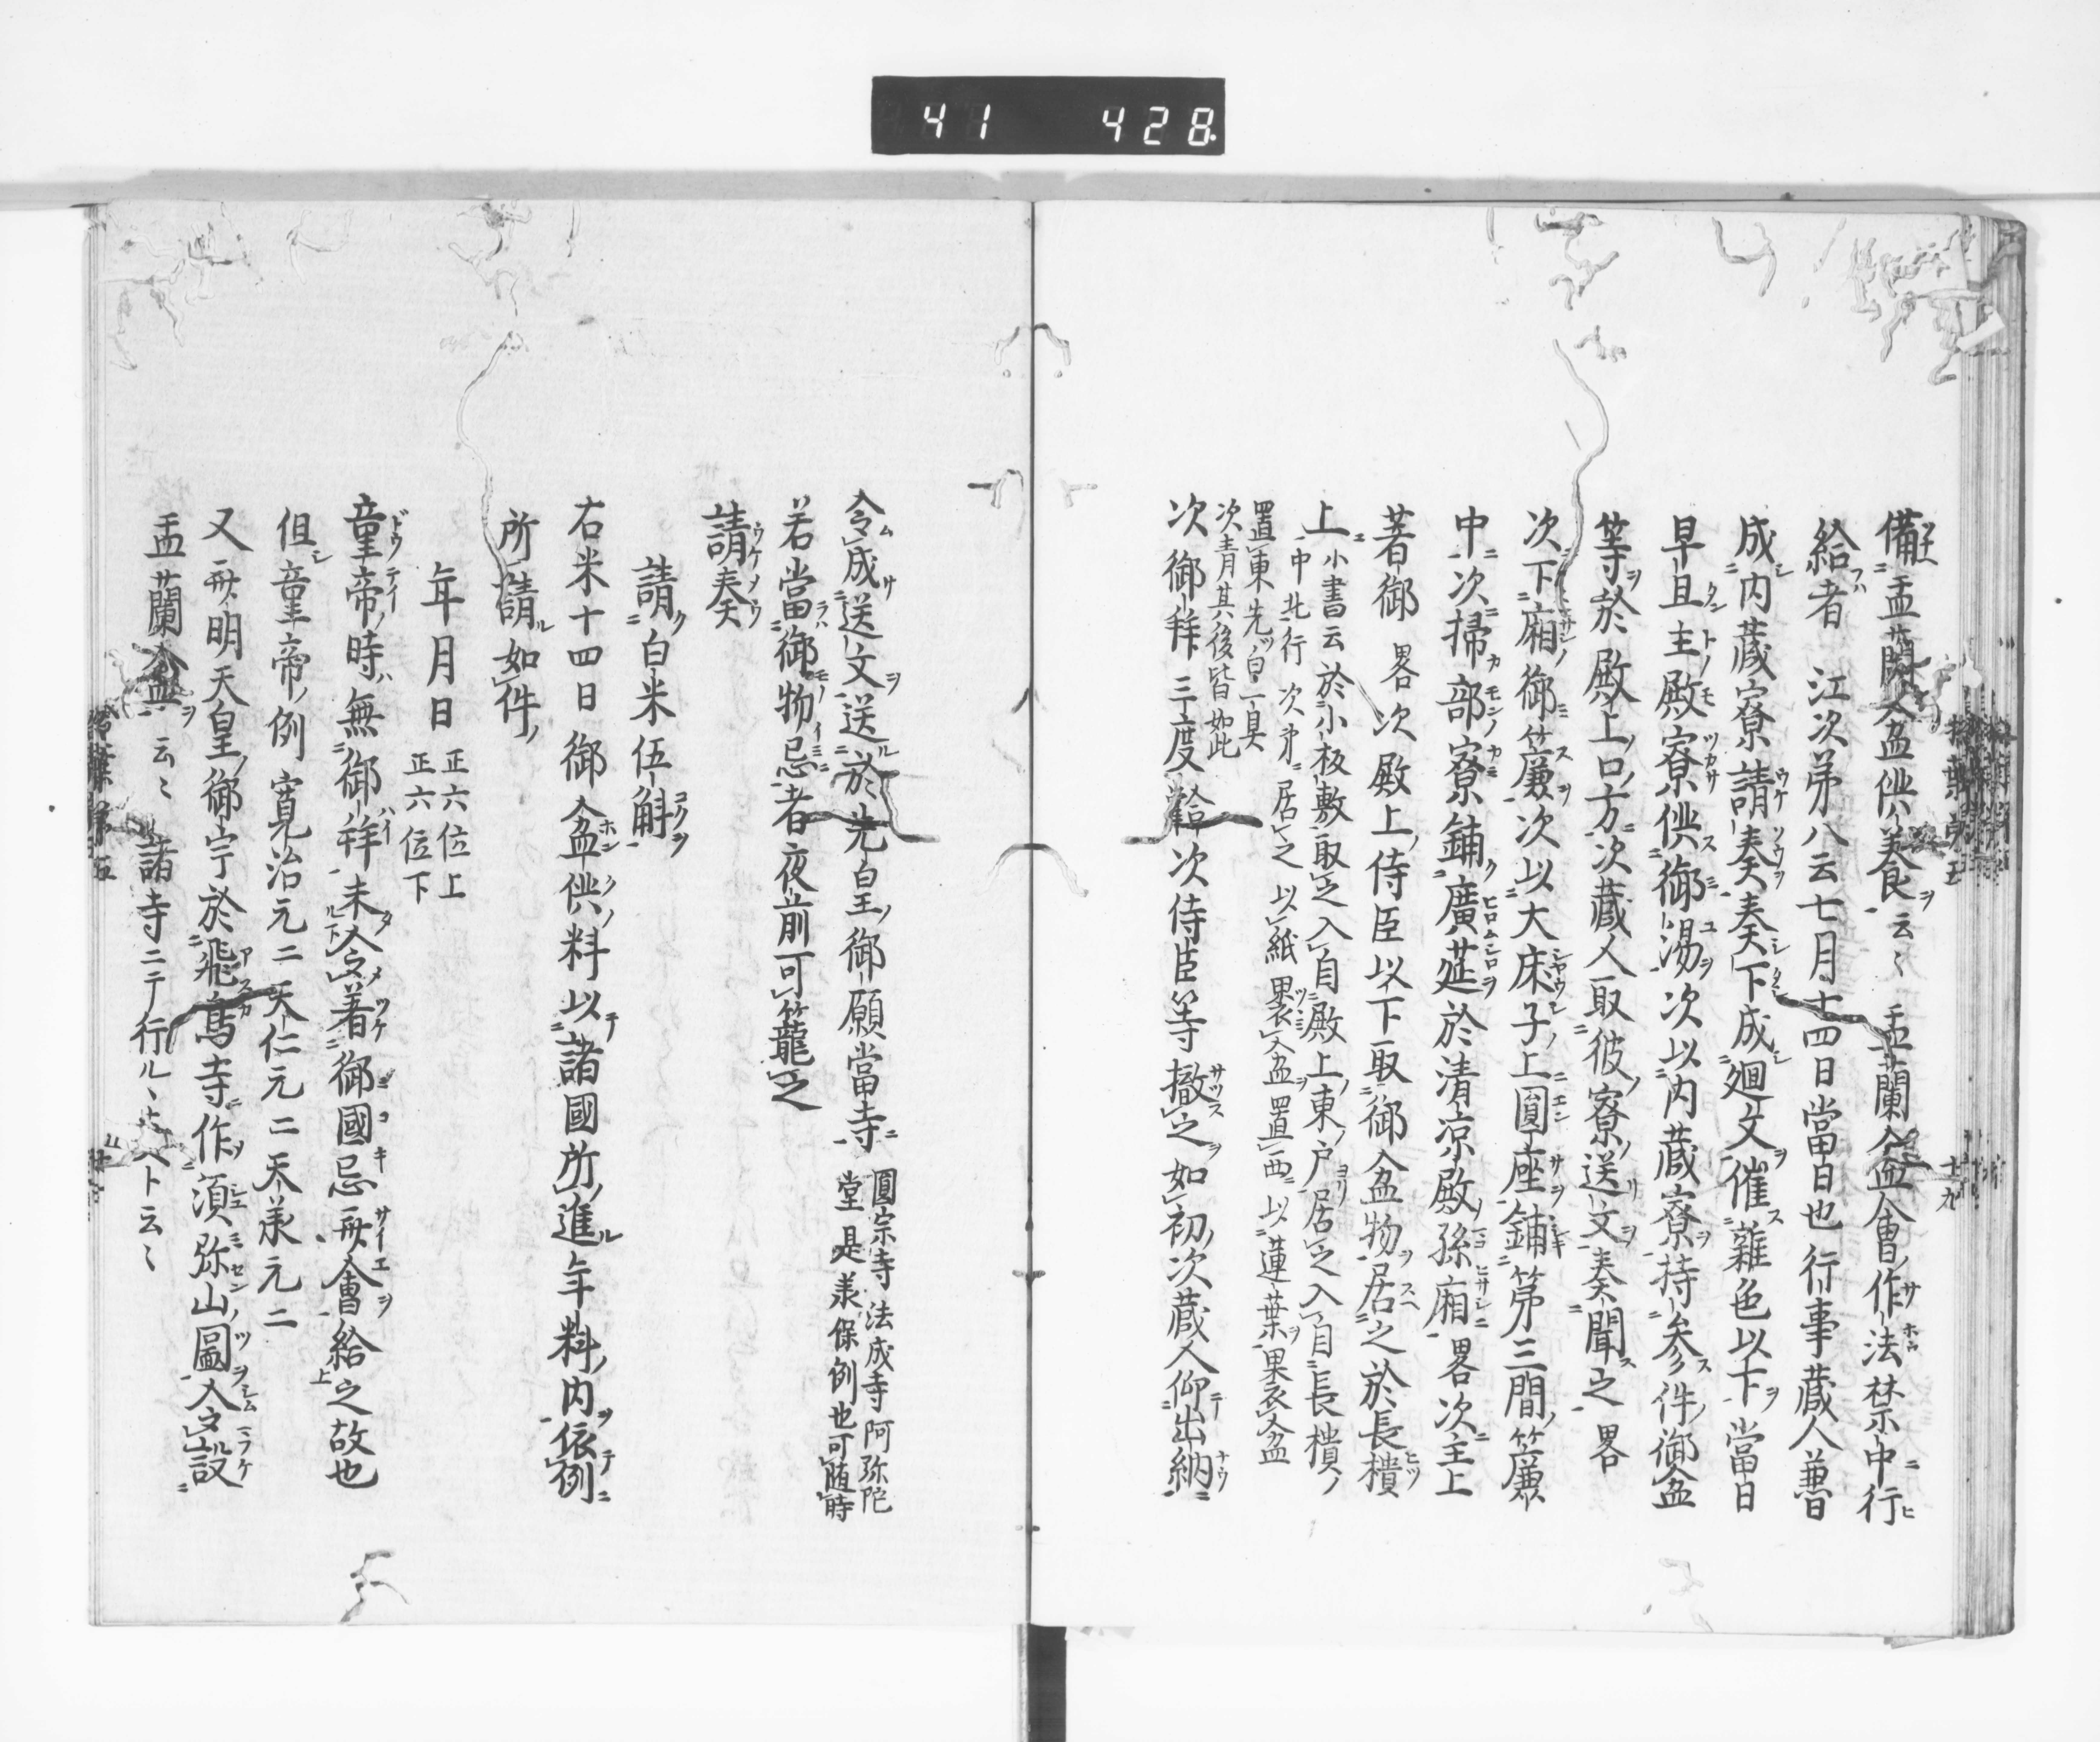 41 428
備盂蘭盆供養云〻 盂蘭盆會作法禁中行
給者 江次第八云七月十四日當日也行事蔵人兼日
成内蔵寮請奏奏下成廻文催雜色以下當日
早旦主殿寮供御湯次以内蔵寮持参件御盆
等於殿上口方次蔵人取彼寮送文奏聞之畧
次下廂御簾次以大床子上圓座鋪第三間簾
中次掃部寮鋪廣莚於清凉殿孫廂畧次主上
著御 畧次殿上侍臣以下取御盆物居之於長樻
上小書云於小板敷取之入自殿上東戸居之入自長樻
中北行次第居之以紙裹盆置西以蓮葉裹盆
置東先白一具
次青其後皆如此
次御拜三度 次侍臣等撤之如初次蔵人仰出納
令成送文送於先皇御願當寺圓宗寺法成寺阿弥陀
堂是羕保例也可随時
若當御物忌者夜前可籠之
請奏
請白米伍斛
右米十四日御盆供料以諸國所進年料内依例
所請如件
年月日正六位上
正六位下
童帝時無御拜未令著御國忌斎會給之故也
但童帝例寛治元二天仁元二天羕元二
又斉明天皇御宇於飛鳥寺作須弥山圖又設
盂蘭盆云〻諸寺ニテ行ル